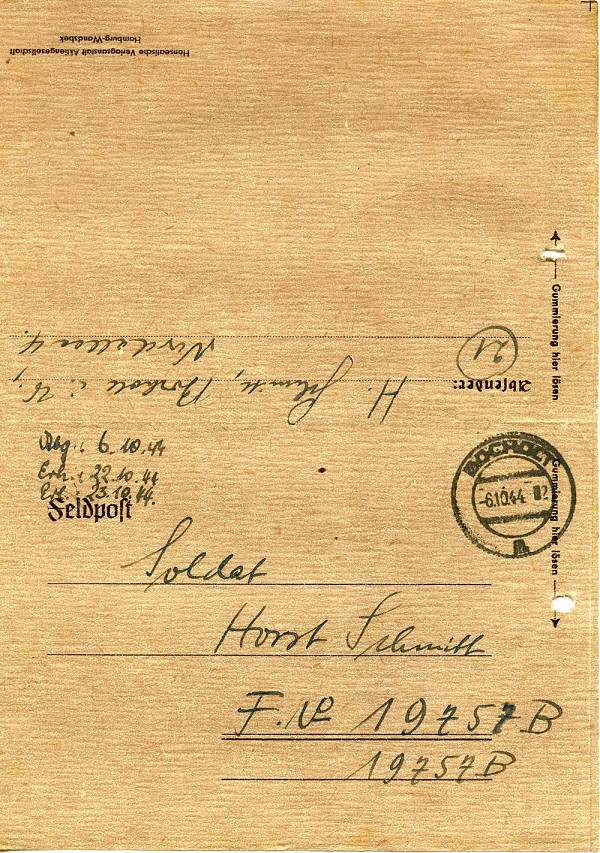 Hanseatische Verlagsanstalt Aktiengesellschaft
Hamburg-Wandsbek
Gummierung hier lösen
Absender:
21
H. Schmitt, Bocholt i. W.,
Nordallee 4.
Abg.: 6.10.44
Erh.: 22.10.44
Erl.: 23.10.44.
Feldpost
BOCHOLT
-6.10.44
a
Gummierung hier lösen
Soldat
Horst Schmitt
F. No 19757B
19757B